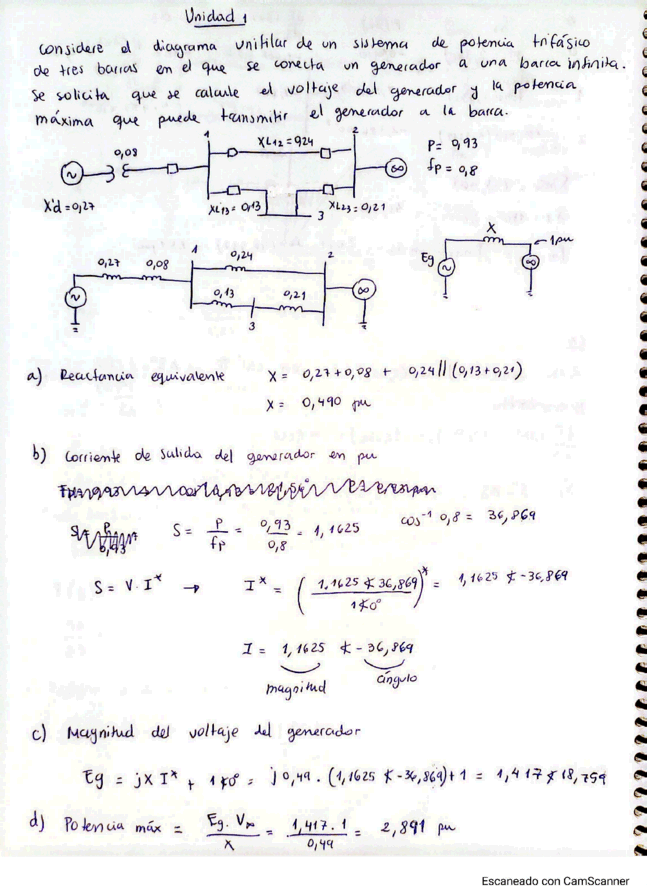 Unidad 1
Considere el diagrama unifilar de un sistema de potencia trifásico
de tres barras en el que se conecta un generador a una barra infinita.
Se solicita que se calcule el voltaje del generador y la potencia
máxima que puede transmitir el generador a la barra.
0,08
1
XL12 = 0,24
2
P = 0,93
fp = 0,8
∞
X'd = 0,27
XL13 = 0,13
3
XL23 = 0,21
X
1pu
Eg
∞
0,27 0,08
1
0,24
2
0,13
0,21
3
∞
a) Reactancia equivalente X = 0,27 + 0,08 + 0,24 || (0,13 + 0,21)
X = 0,490 pu
b) Corriente de salida del generador en pu
S = P/fp = 0,93/0,8 = 1,1625 cos⁻¹ 0,8 = 36,869
S = V · I* → I* = (1,1625 ∡ 36,869 / 1∡0°)* = 1,1625 ∡ -36,869
I = 1,1625 ∡ -36,869
magnitud ángulo
c) Magnitud del voltaje del generador
Eg = jX I* + 1∡0° = j0,49 · (1,1625 ∡ -36,869) + 1 = 1,417 ∡ 18,759
d) Potencia máx = Eg · V∞ / X = 1,417 · 1 / 0,49 = 2,891 pu
Escaneado con CamScanner